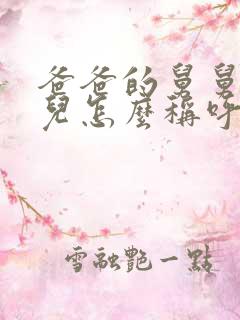 爸爸的舅舅
兒怎麼稱呼
雪融艷一點